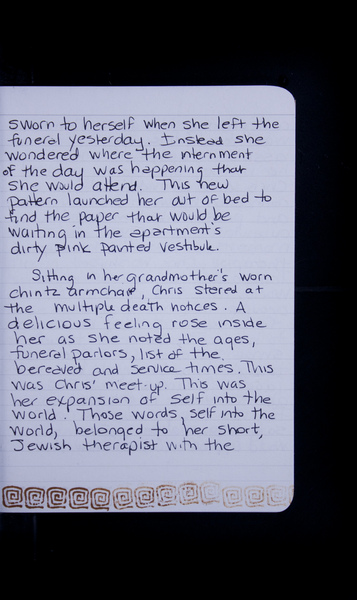 sworn to herself when she left the
funeral yesterday. Instead she
wondered where the internment
of the day was happening that
she would attend. This new
pattern launched her out of bed to
find the paper that would be
waiting in the apartment's
dirty pink painted vestibule.
Sitting in her grandmother's worn
chintz armchair, Chris stared at
the multiple death notices. A
delicious feeling rose inside
her as she noted the ages,
funeral parlors, list of the
bereaved and service times. This
was Chris' meet-up. This was
her expansion of self into the
world. Those words, self into the
world, belonged to her short,
Jewish therapist with the